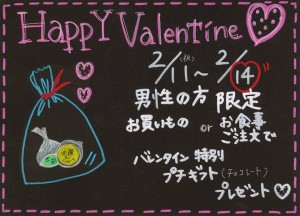 Happy Valentine
2/11(祝)～2/14
男性の方 限定
お買いもの or お食事
ご注文で
バレンタイン 特別
プチギフト(チョコレート)
プレゼント